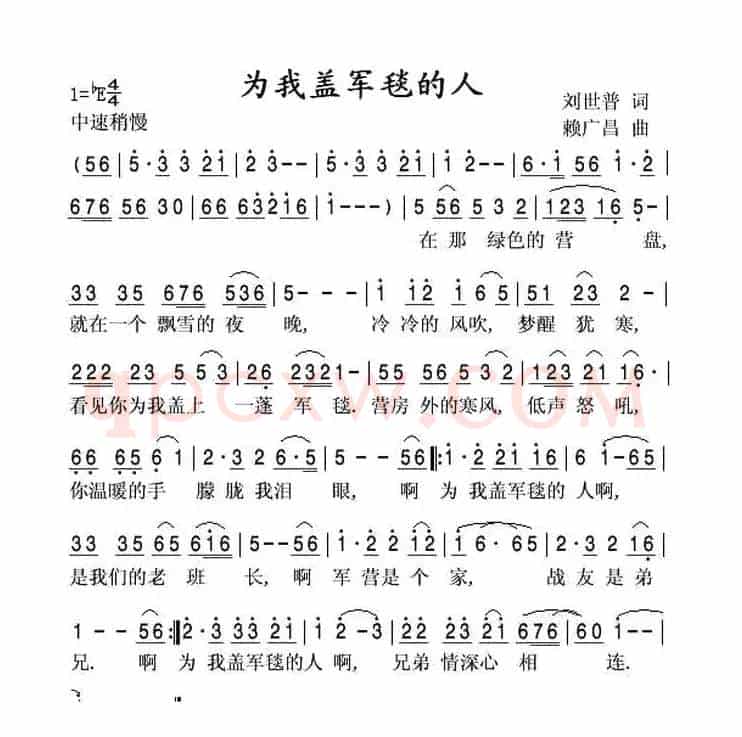 为我盖军毯的人
1=♭E 4/4
刘世普 词
中速稍慢
赖广昌 曲
(56|5·3 33 21|2 3--|5·3 33 21|1 2--|6·1 56 1·2|
676 56 30|66 632 16|1---)|5 56 5 3 2|123 16 5-|
在那 绿色的 营 盘,
33 35 676 536|5--|1 12 1 6 5|51 23 2-|
就在一个 飘雪的 夜 晚, 冷 冷的 风吹, 梦醒 犹 寒,
222 23 5 5 3|26 2321-|55 56 5 3 2|123 21 16·|
看见你为我盖上 一蓬 军 毯. 营房 外的寒风, 低声 怒 吼,
66 65 6 1|2·3 2 6·5|5-- 56‖:1·2 22 21 16|1-65|
你温暖的手 朦胧 我泪 眼, 啊 为 我盖军毯的 人啊,
33 35 65 616|5--56|1·2 2 12|1 6·65|2 2 3 16|
是我们的老 班 长, 啊 军 营是 个 家, 战友 是 弟
1--56:‖2·3 33 21|1 2-3|22 23 21 676|60 1--|
兄. 啊 为 我盖军毯的人 啊, 兄弟 情深心 相 连.
qpcxw.COM